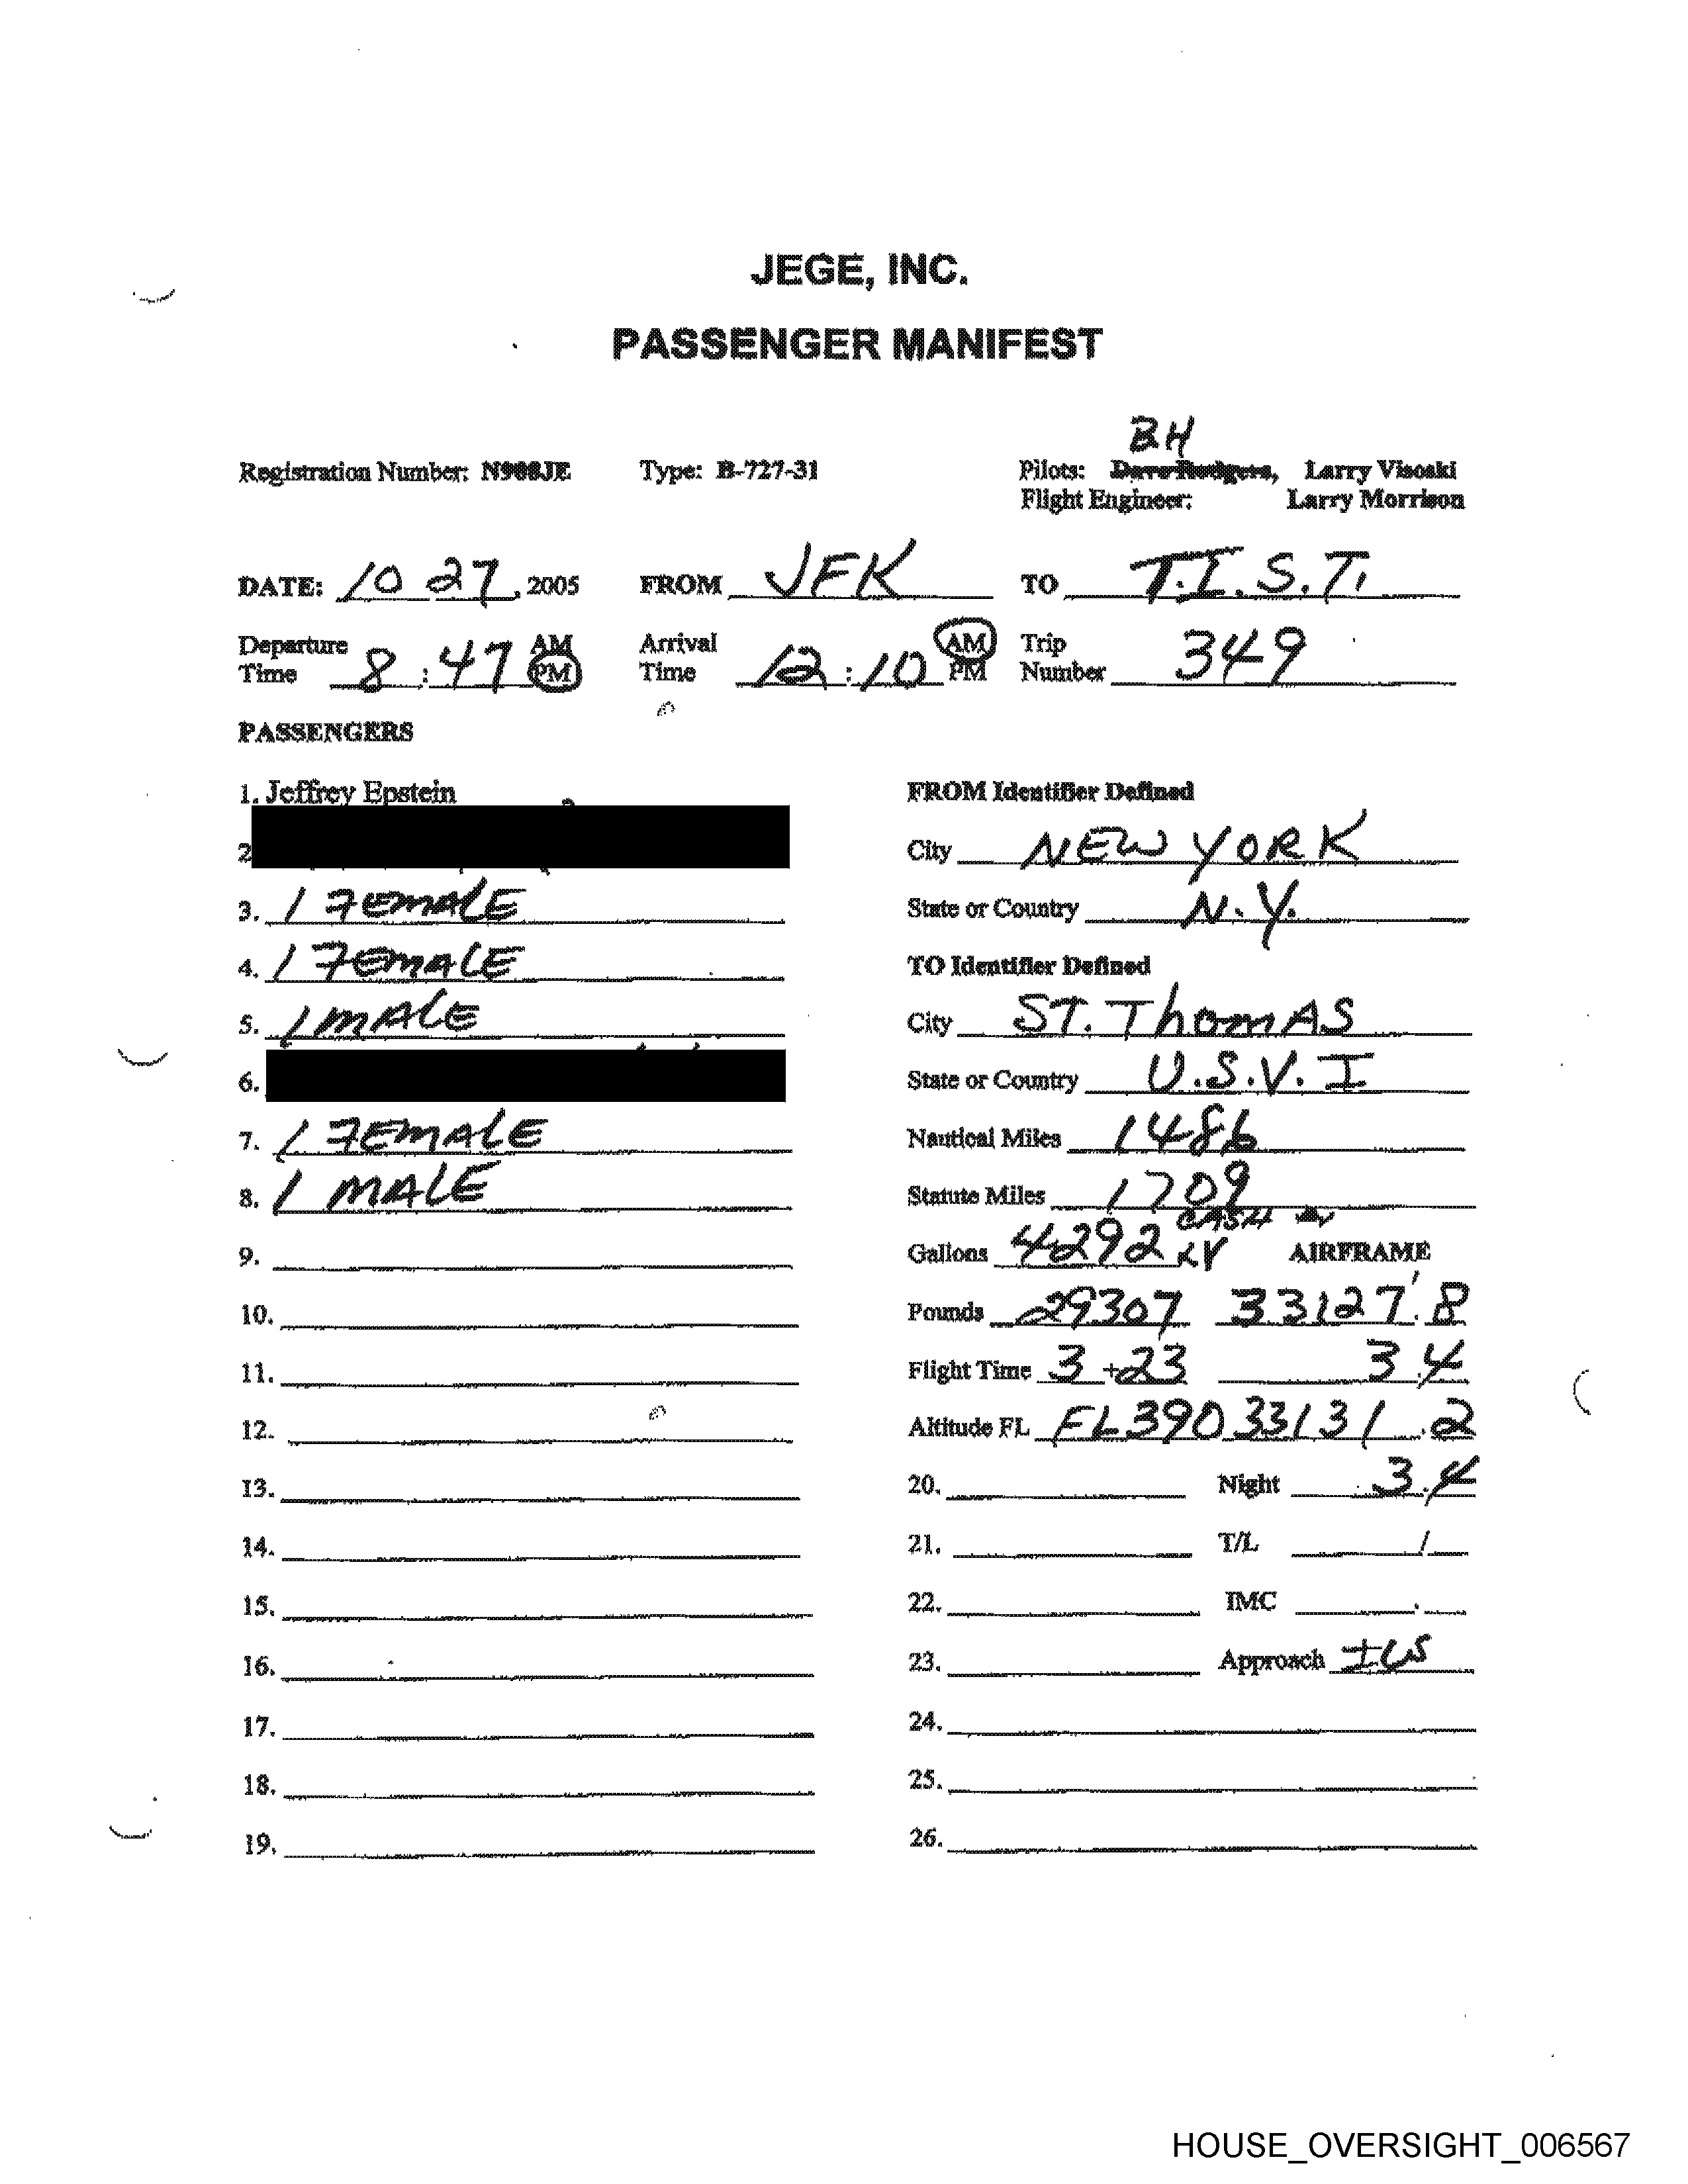 JEGE, INC.
PASSENGER MANIFEST
BH
Registration Number: N908JE Type: B-727-31 Pilots: Dave Rodgers, Larry Visoski
Flight Engineer: Larry Morrison
DATE: 10 27, 2005 FROM JFK TO T.I.S.T.
Departure Time 8:47 AM PM Arrival Time 12:10 AM PM Trip Number 349
PASSENGERS
1. Jeffrey Epstein
2
3. 1 FEMALE
4. 1 FEMALE
5. 1 MALE
6.
7. 1 FEMALE
8. 1 MALE
9.
10.
11.
12.
13.
14.
15.
16.
17.
18.
19.
FROM Identifier Defined
City NEW YORK
State or Country N.Y.
TO Identifier Defined
City ST. ThomAS
State or Country U.S.V.I
Nautical Miles 1486
Statute Miles 1709
CASH
Gallons 4292 AIRFRAME
Pounds 29307 33127.8
Flight Time 3+23 3.4
Altitude FL FL390 33131.2
20. Night 3.4
21. T/L /
22. IMC .
23. Approach ILS
24.
25.
26.
HOUSE_OVERSIGHT_006567